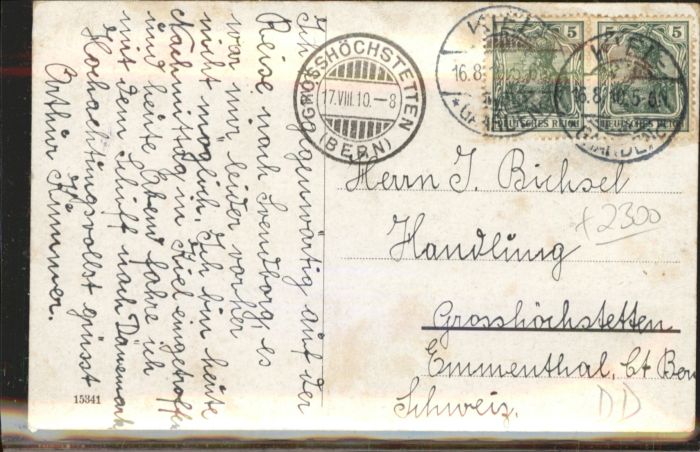 Ich gegenwärtig auf der
Reise nach Svendborg, es
war mir leider vorher
nicht möglich. Ich bin heute
Nachmittag in Kiel eingetroffen
und heute Abend fahre ich
mit dem Schiff nach Dänemark
Hochachtungsvollst grüsst
Arthur Kummer.
15341
GROSSHÖCHSTETTEN
17.VIII.10.-8
(BERN)
KIEL
16.8.
5
DEUTSCHES REICH
KIEL
16.8.10.5-6N
GAARDEN
5
DEUTSCHES REICH
Herrn J. Bichsel
+2300
Handlung
Grosshöchstetten
Emmenthal, Ct Bern
Schweiz.
DD